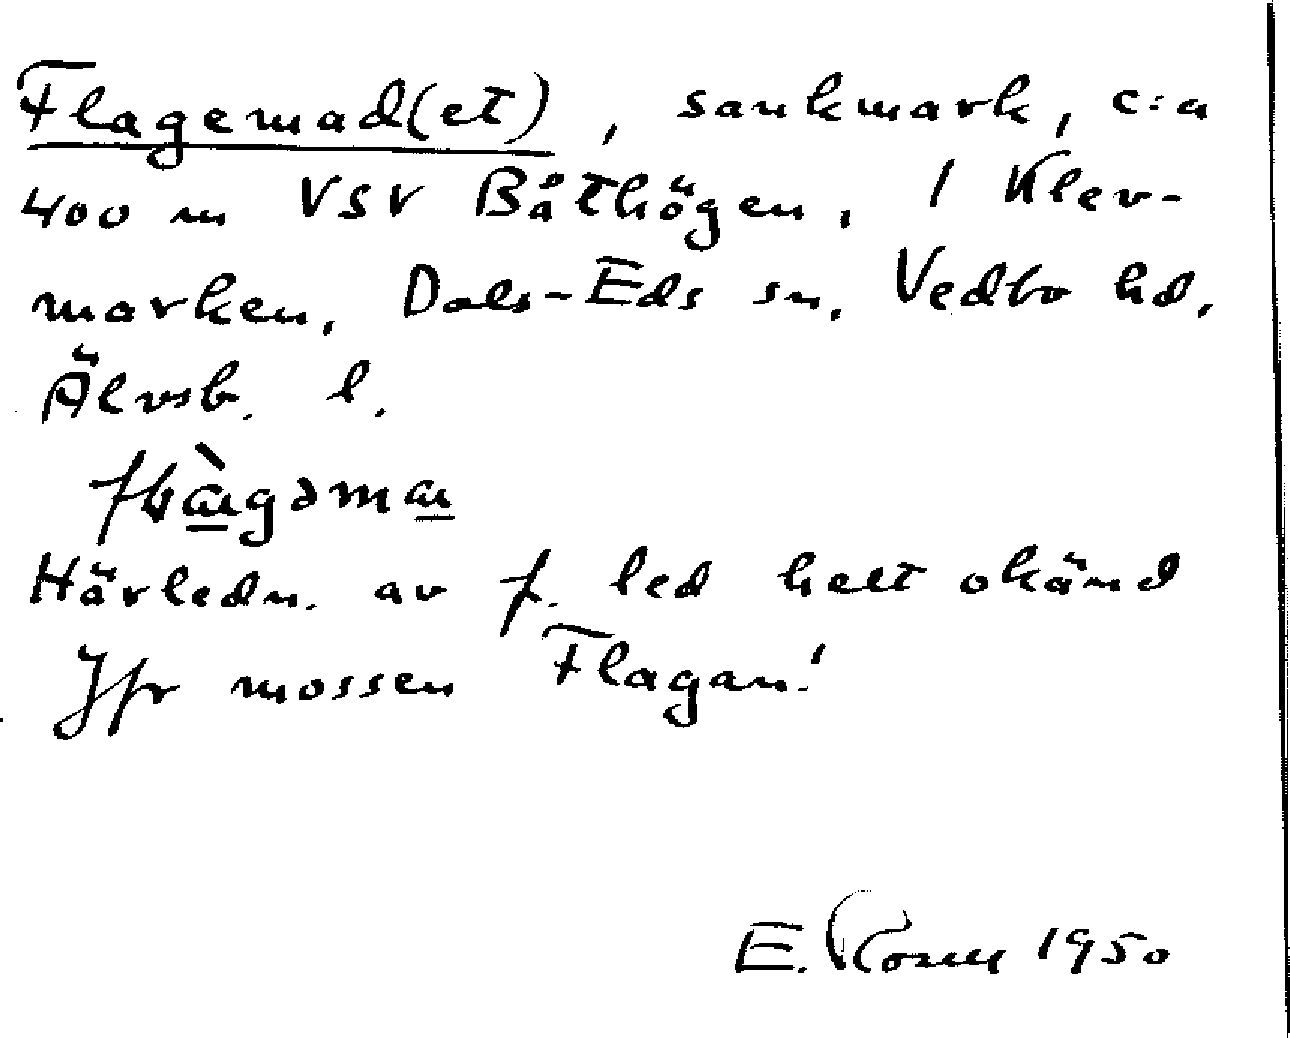 Flagemad(et), sankmark, c:a
400 m VSV Båthögen, 1 Klev-
marken, Dals-Eds sn, Vedbo hd,
Älvsb. l.
Härledn. av f. led helt okänd
Jfr mossen Flagan!
E. 1950